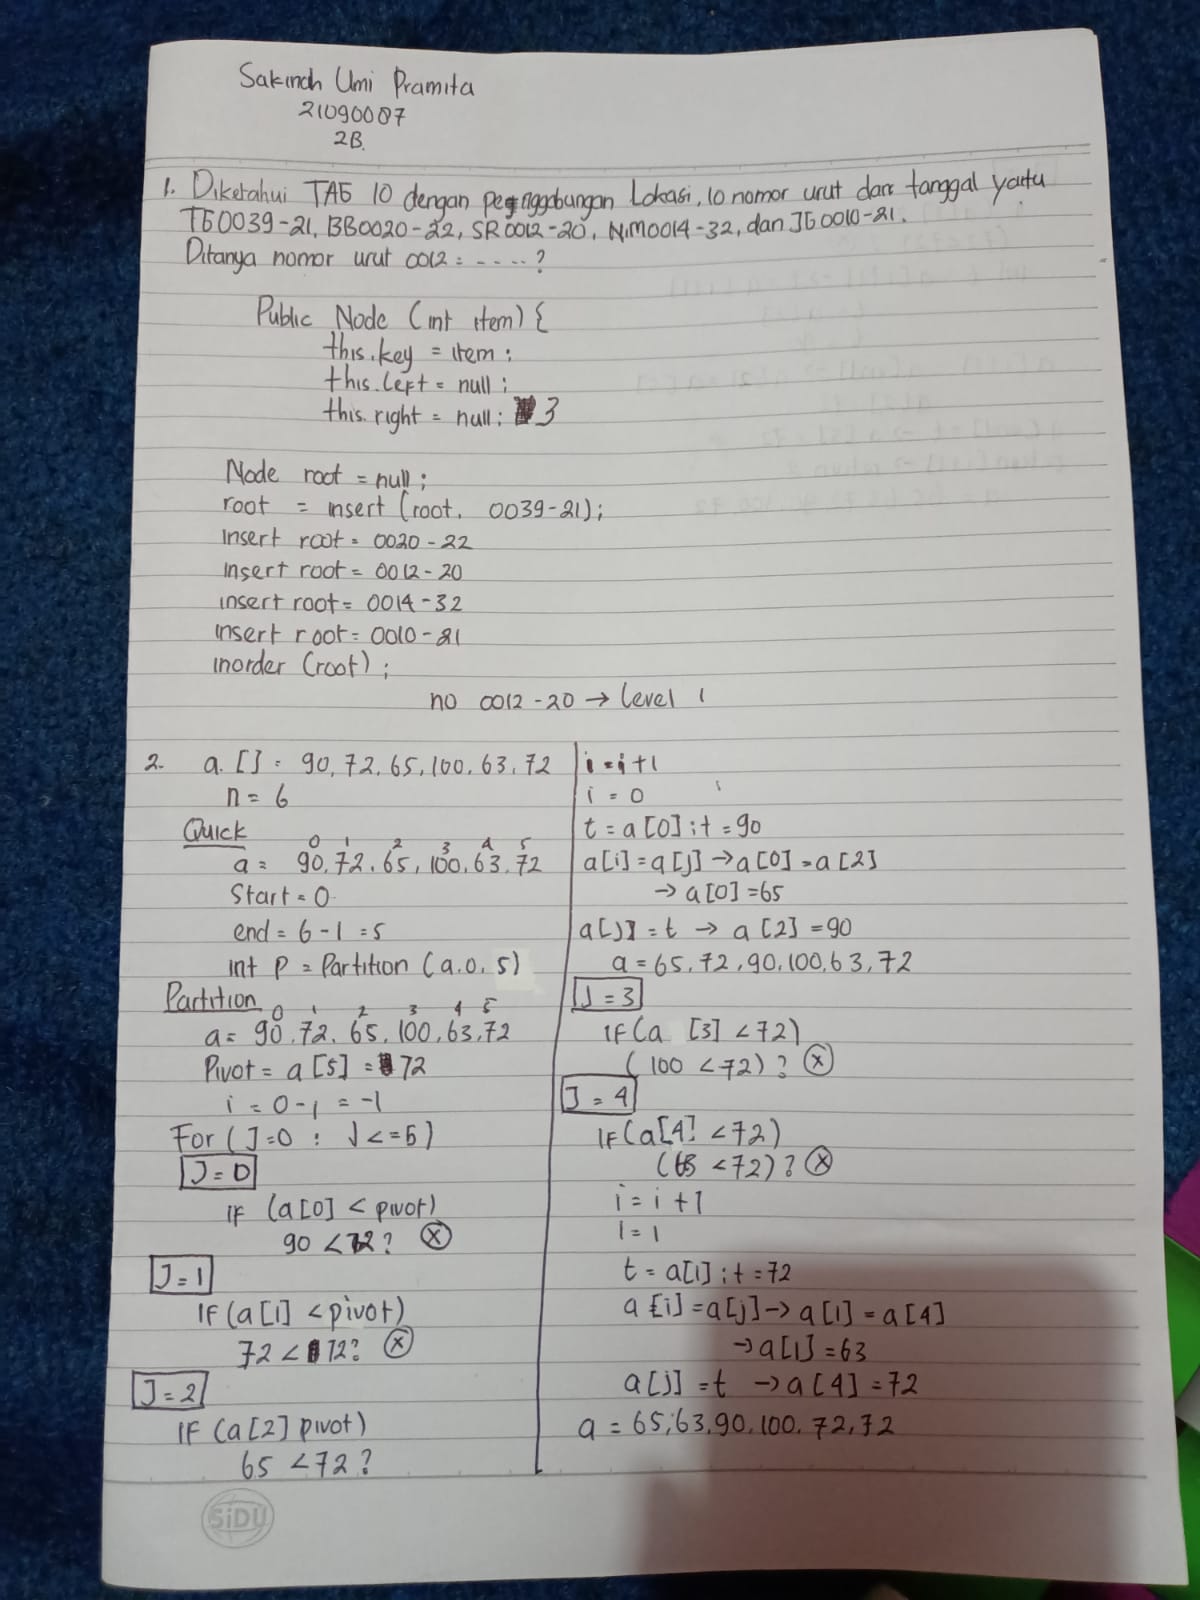 Sakinah Umi Pramita
21090087
2B.
1. Diketahui TAG 10 dengan penggabungan Lokasi, 10 nomor urut dari tanggal yaitu
TG0039-21, BB0020-22, SR0012-20, NIM0014-32, dan JG0010-21.
Ditanya nomor urut 0012 = - - - - ?
Public Node (int item) {
this.key = item;
this.left = null;
this.right = null; }
Node root = null;
root = insert (root, 0039-21);
insert root = 0020-22
insert root = 0012-20
insert root = 0014-32
insert root = 0010-21
inorder (root);
no 0012-20 → Level 1
2. a. [] = 90, 72, 65, 100, 63, 72
n = 6
Quick
0 1 2 3 4 5
a = 90, 72, 65, 100, 63, 72
Start = 0
end = 6-1 = 5
int P = Partition (a. 0. 5)
Partition
0 1 2 3 4 5
a = 90, 72, 65, 100, 63, 72
Pivot = a [5] = 72
i = 0-1 = -1
For (J=0 ; J<=5)
J=0
if (a[0] < pivot)
90 < 72? X
J=1
if (a[1] < pivot)
72 < 72? X
J=2
if (a[2] pivot)
65 < 72?
i = i+1
i = 0
t = a[0] ; t = 90
a[i] = a[j] → a[0] = a[2]
→ a[0] = 65
a[j] = t → a[2] = 90
a = 65, 72, 90, 100, 63, 72
J=3
if (a [3] < 72)
( 100 < 72) ? X
J=4
if (a[4] < 72)
(63 < 72) ? X
i = i + 1
1 = 1
t = a[i] ; t = 72
a [i] = a[j] → a[1] = a[4]
→ a[1] = 63
a[j] = t → a[4] = 72
a = 65, 63, 90, 100, 72, 72
SiDU